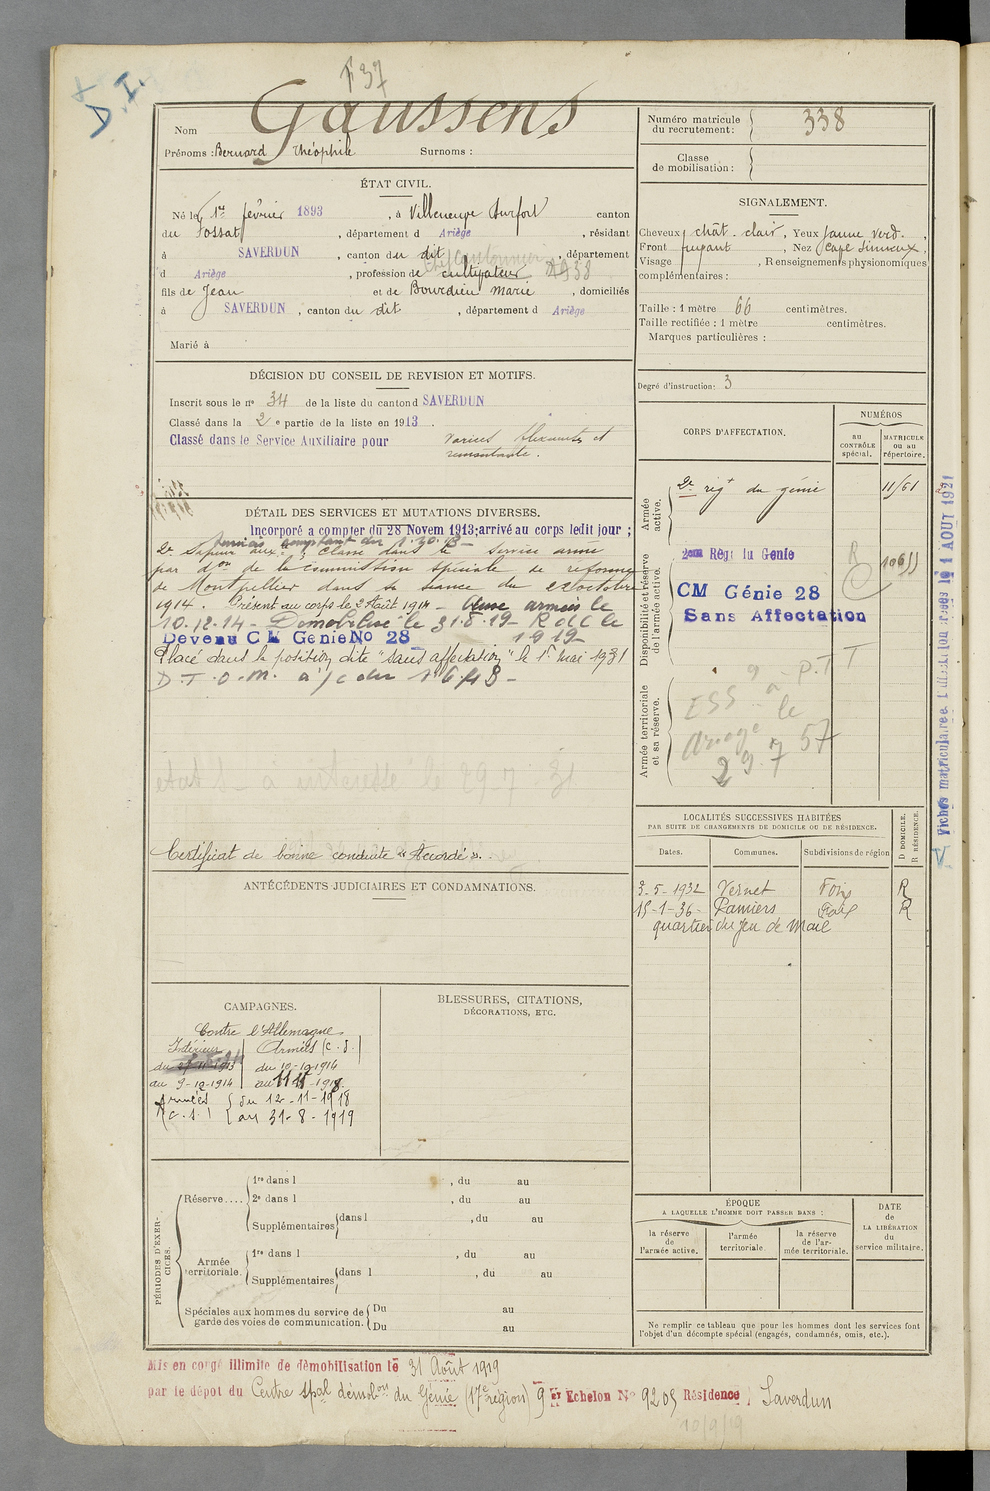 F 37
D. I.
Nom Gaussens
Prénoms : Bernard Théophile Surnoms :
Numéro matricule du recrutement : 338
Classe de mobilisation :
ÉTAT CIVIL.
Né le 1er février 1893, à Villeneuve Durfort canton
du Fossat, département d Ariège, résidant
à SAVERDUN, canton du dit, département
d Ariège, profession de cultivateur
fils de Jean et de Bourdieu Marie, domiciliés
à SAVERDUN, canton du dit, département d Ariège
Marié à
SIGNALEMENT.
Cheveux chât. clair, Yeux jaune verd.,
Front fuyant, Nez Cave Sinueux,
Visage , Renseignements physionomiques
complémentaires :
Taille : 1 mètre 66 centimètres.
Taille rectifiée : 1 mètre centimètres.
Marques particulières :
Degré d'instruction : 3
DÉCISION DU CONSEIL DE REVISION ET MOTIFS.
Inscrit sous le n° 34 de la liste du canton d SAVERDUN
Classé dans la 2e partie de la liste en 1913.
Classé dans le Service Auxiliaire pour varices
DÉTAIL DES SERVICES ET MUTATIONS DIVERSES.
Incorporé à compter du 28 Novem 1913; arrivé au corps ledit jour ;
2e Sapeur aux. Classé dans le service armé
par don de la Commission spéciale de réforme
de Montpellier dans sa séance du 22 octobre
1914. Présent au corps le 2 Août 1914 - armées le
10.12.14 - Démobilisé le 31-8-19 R
1919
Devenu CM Génie No 28
Placé dans la position dite "sans affectation" le 1er mai 1931
D.T.O.M. à
état S. à intéressé le 29-7-31
Certificat de bonne conduite "Accordé".
CORPS D'AFFECTATION.
NUMÉROS
au CONTRÔLE spécial.
MATRICULE ou au répertoire.
Armée active.
2e régt du génie 11/61
Disponibilité et réserve de l'armée active.
2eme Régt du Génie
CM Génie 28
Sans Affectation
Armée territoriale et sa réserve.
P.T T
ESS à
Ariège le
29.7 57
Fiches matricul
1 AOUT 1921
LOCALITÉS SUCCESSIVES HABITÉES
PAR SUITE DE CHANGEMENTS DE DOMICILE OU DE RÉSIDENCE.
D DOMICILE. R RÉSIDENCE.
Dates. Communes. Subdivisions de région
3-5-1932 Vernet Foix R
15-1-36- Pamiers Foix R
quartier du Jeu de Mail
ANTÉCÉDENTS JUDICIAIRES ET CONDAMNATIONS.
CAMPAGNES.
Contre l'Allemagne
Intérieur
du 27-11-1913
au 9-12-1914
Armées (C.D.)
du 10-12-1914
au 11-11-1918
Armées (C.S.) du 12-11-1918
au 31-8-1919
BLESSURES, CITATIONS,
DÉCORATIONS, ETC.
PÉRIODES D'EXERCICES.
Réserve....
1re dans l , du au
2e dans l , du au
Supplémentaires dans l , du au
Armée territoriale.
1re dans l , du au
Supplémentaires dans l , du au
Spéciales aux hommes du service de garde des voies de communication.
Du au
Du au
ÉPOQUE
A LAQUELLE L'HOMME DOIT PASSER DANS :
la réserve de l'armée active.
l'armée territoriale
la réserve de l'armée territoriale.
DATE de LA LIBÉRATION du service militaire.
Ne remplir ce tableau que pour les hommes dont les services font
l'objet d'un décompte spécial (engagés, condamnés, omis, etc.).
Mis en congé illimité de démobilisation le 31 Août 1919
par le dépôt du Centre spal démobon du Génie (17e région) 9e Echelon No 9205 Résidence Saverdun
10/9/19